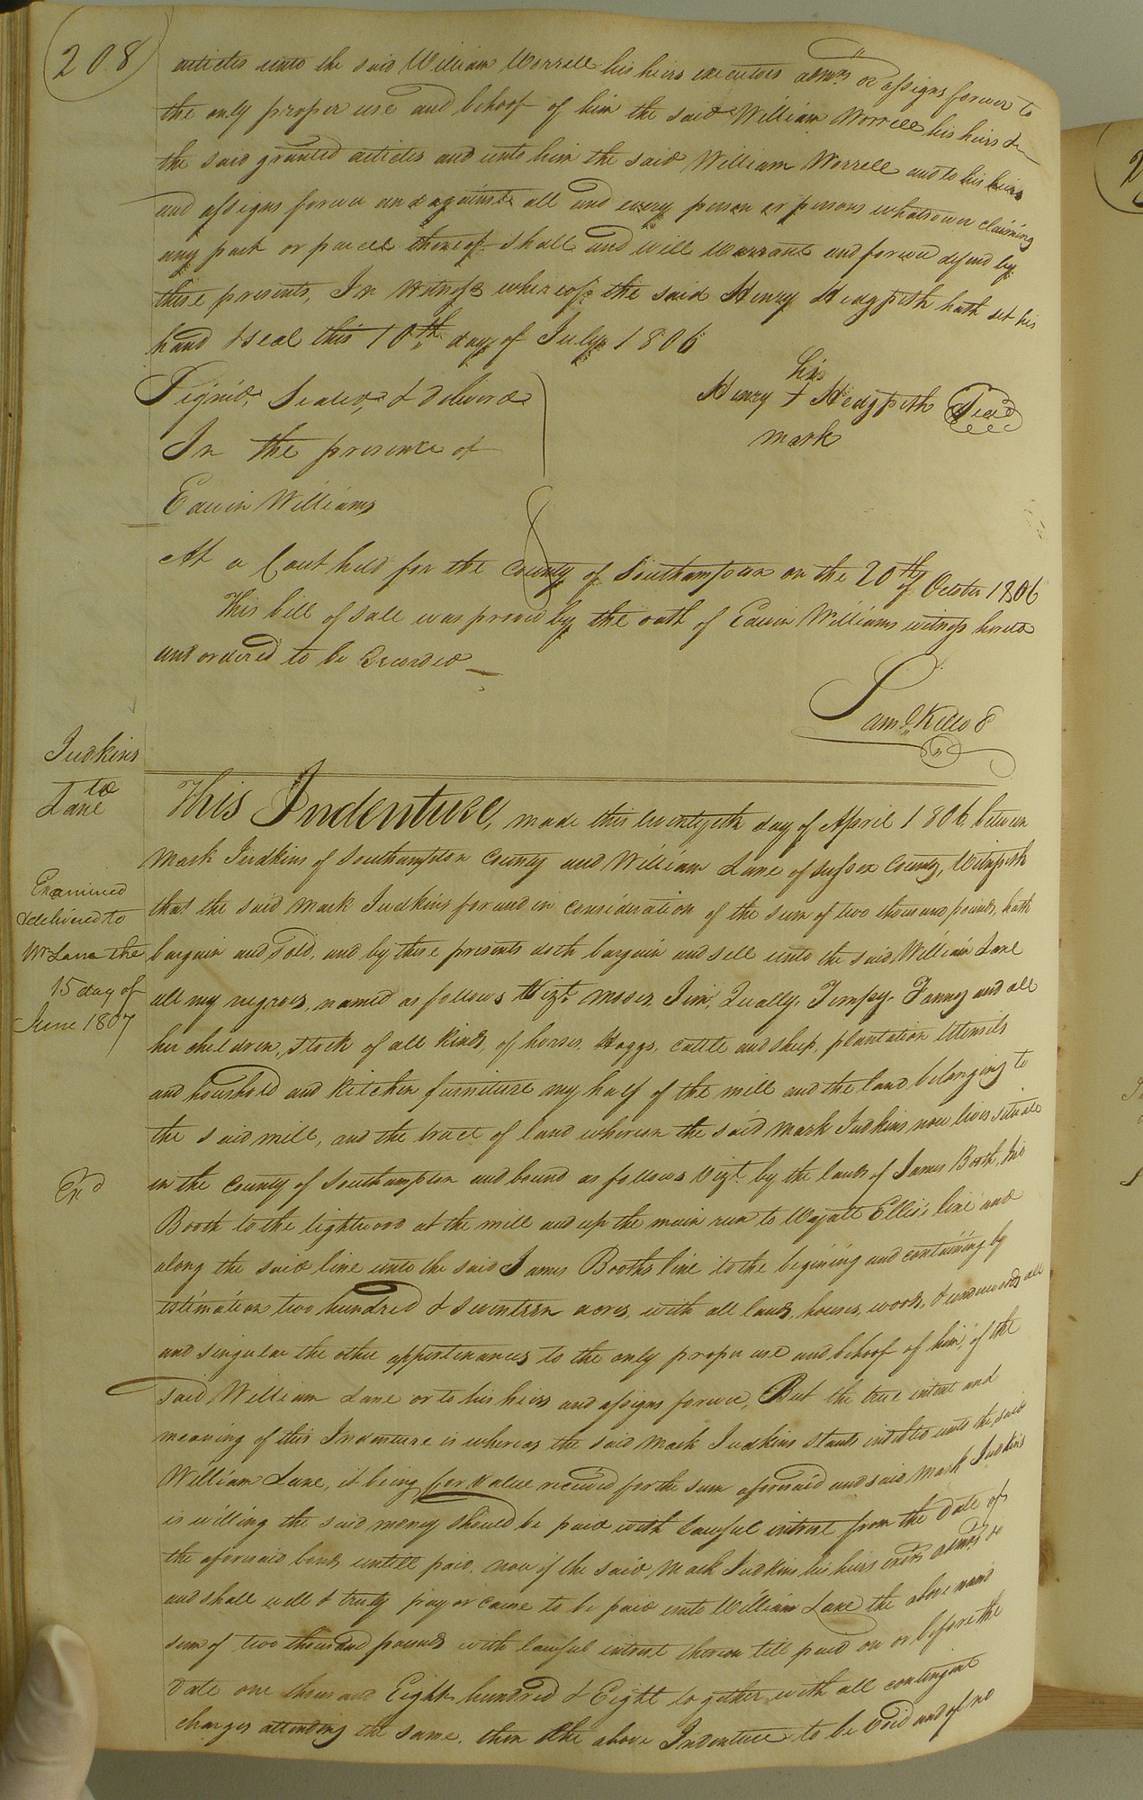 208
articles unto the said William Worrell his heirs executors admrs or assigns forever to
the only proper use and behoof of him the said William Worrell his heirs &c
the said granted articles and unto him the said William Worrell and to his heirs
and assigns forever and against all and every person or persons whatsoever claiming
any part or parcel thereof shall and will Warrant and forever defend by
these presents, In Witness whereof the said Henry Hedgpeth hath set his
hand & seal this 10th day of July 1806
his
Henry + Hedgpeth Seal
mark
Signd, Sealed, & delivered
In the presence of
Edwin Williams
At a Court held for the County of Southampton on the 20th of October 1806
This bill of sale was proved by the oath of Edwin Williams witness hereto
and ordered to be Recorded
Saml Kello
Judkins
to
Lane
Examined
& delivered to
Wm Lane the
15 day of
June 1807
Exd
This Indenture, made this day of April 1806 between
Mark Judkins of Southampton County and William Lane of Sussex County, Witnesseth
that the said Mark Judkins for and in consideration of the sum of two thousand pounds, hath
bargain and Sold, and by these presents doth bargain and sell unto the said William Lane
all my negroes, named as follows Vizt. Moses, Jim, Qually, Tempy, Fanny and all
her children, stock of all kinds, of horses, Hoggs, cattle and sheep, plantation Utensils
and houshold and Kitchen furniture my half of the mill and the land belonging to
the said mill, and the tract of land whereon the said Mark Judkins now lives situate
in the County of Southampton and bound as follows Vizt. by the lands of James Booth,
Booth to the lightwood at the mill and up the main run to Wyatt Ellis's line and
along the said line unto the said James Booths line to the begining and containing by
estimation two hundred & seventeen acres, with all lands, houses, woods, & underwoods all
and singular the other appertinances to the only proper use and behoof of him, of the
said William Lane or to his heirs and assigns forever, But the true intent and
meaning of this Indenture is whereas the said Mark Judkins stands indebted unto the said
William Lane, it being for Value received for the sum aforesaid and said Mark Judkins
is willing the said money should be paid with lawful interest from the date of
the aforesaid bonds untill paid. now if the said Mark Judkins his heirs exors admrs &c
and shall well & truly pay or cause to be paid unto William Lane the above named
sum of two thousand pounds with lawful interest thereon till paid on or before the
date one thousand Eight hundred & Eight together with all contingent
charges attending the same, then the above Indenture to be Void and of no